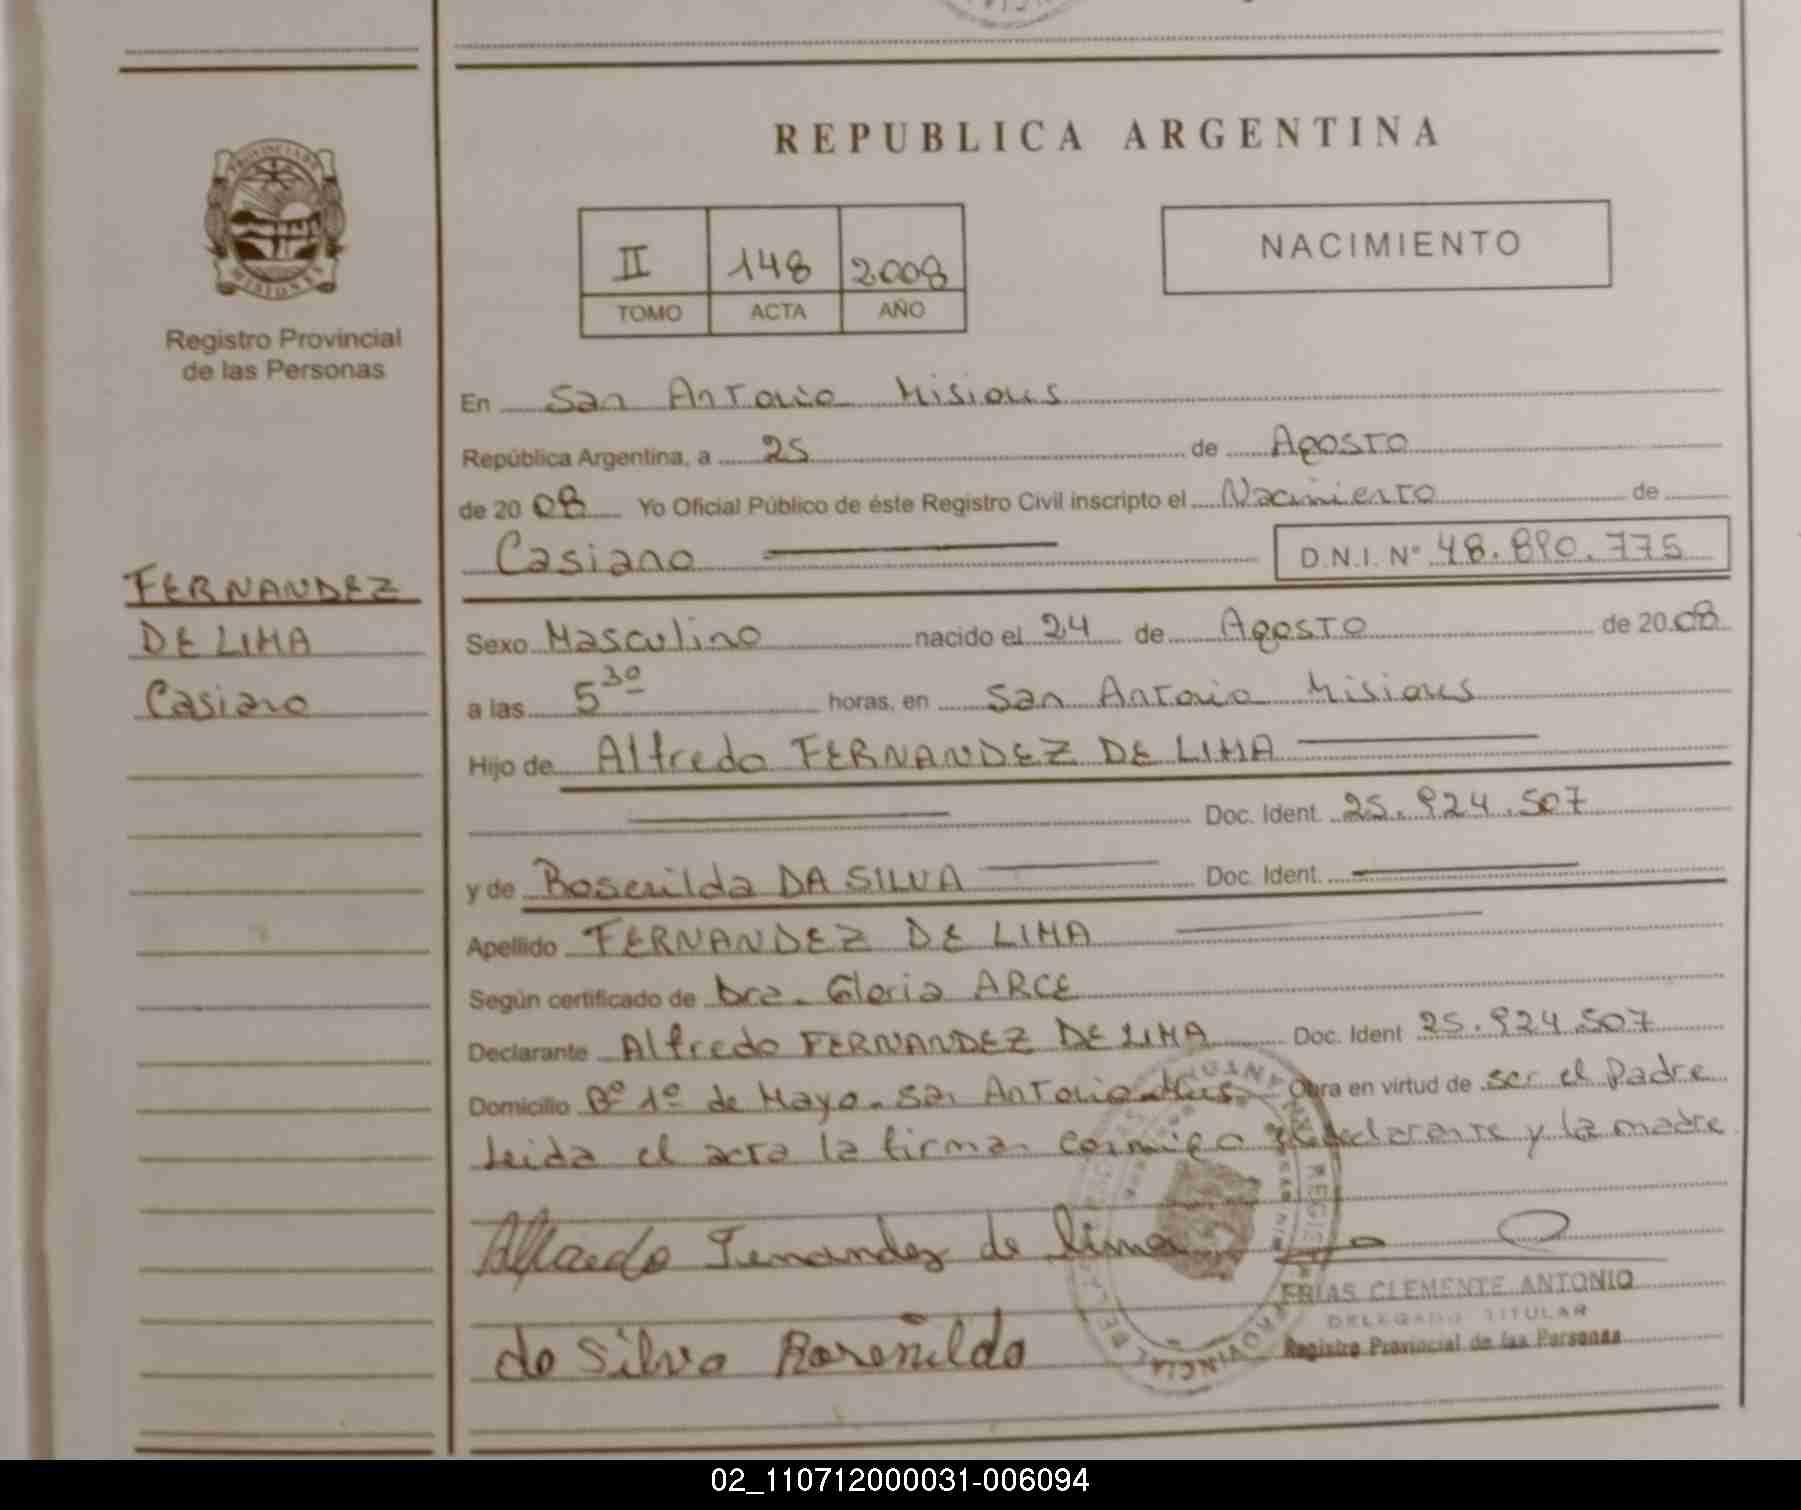 REPUBLICA ARGENTINA
PROVINCIA DE
MISIONES
Registro Provincial
de las Personas
II 148 2008
TOMO ACTA AÑO
NACIMIENTO
En San Antonio Misiones
República Argentina, a 25 de Agosto
de 20 08 Yo Oficial Público de éste Registro Civil inscripto el Nacimiento de
Casiano D.N.I. Nº 48.890.775
FERNANDEZ
DE LIMA
Casiano
Sexo Masculino nacido el 24 de Agosto de 20 08
a las 5 30 horas, en San Antonio Misiones
Hijo de Alfredo FERNANDEZ DE LIMA
Doc. Ident. 25.924.507
y de Rosenilda DA SILVA Doc. Ident.
Apellido FERNANDEZ DE LIMA
Según certificado de Dra. Gloria ARCE
Declarante Alfredo FERNANDEZ DE LIMA Doc. Ident 25.924.507
Domicilio Bº 1º de Mayo. San Antonio Mnes. Obra en virtud de ser el Padre
Leida el acta la firman conmigo el declarante y la madre
Alfredo Fernandez de lima
da Silva Rosenilda
FRIAS CLEMENTE ANTONIO
DELEGADO TITULAR
Registro Provincial de las Personas
02_110712000031-006094